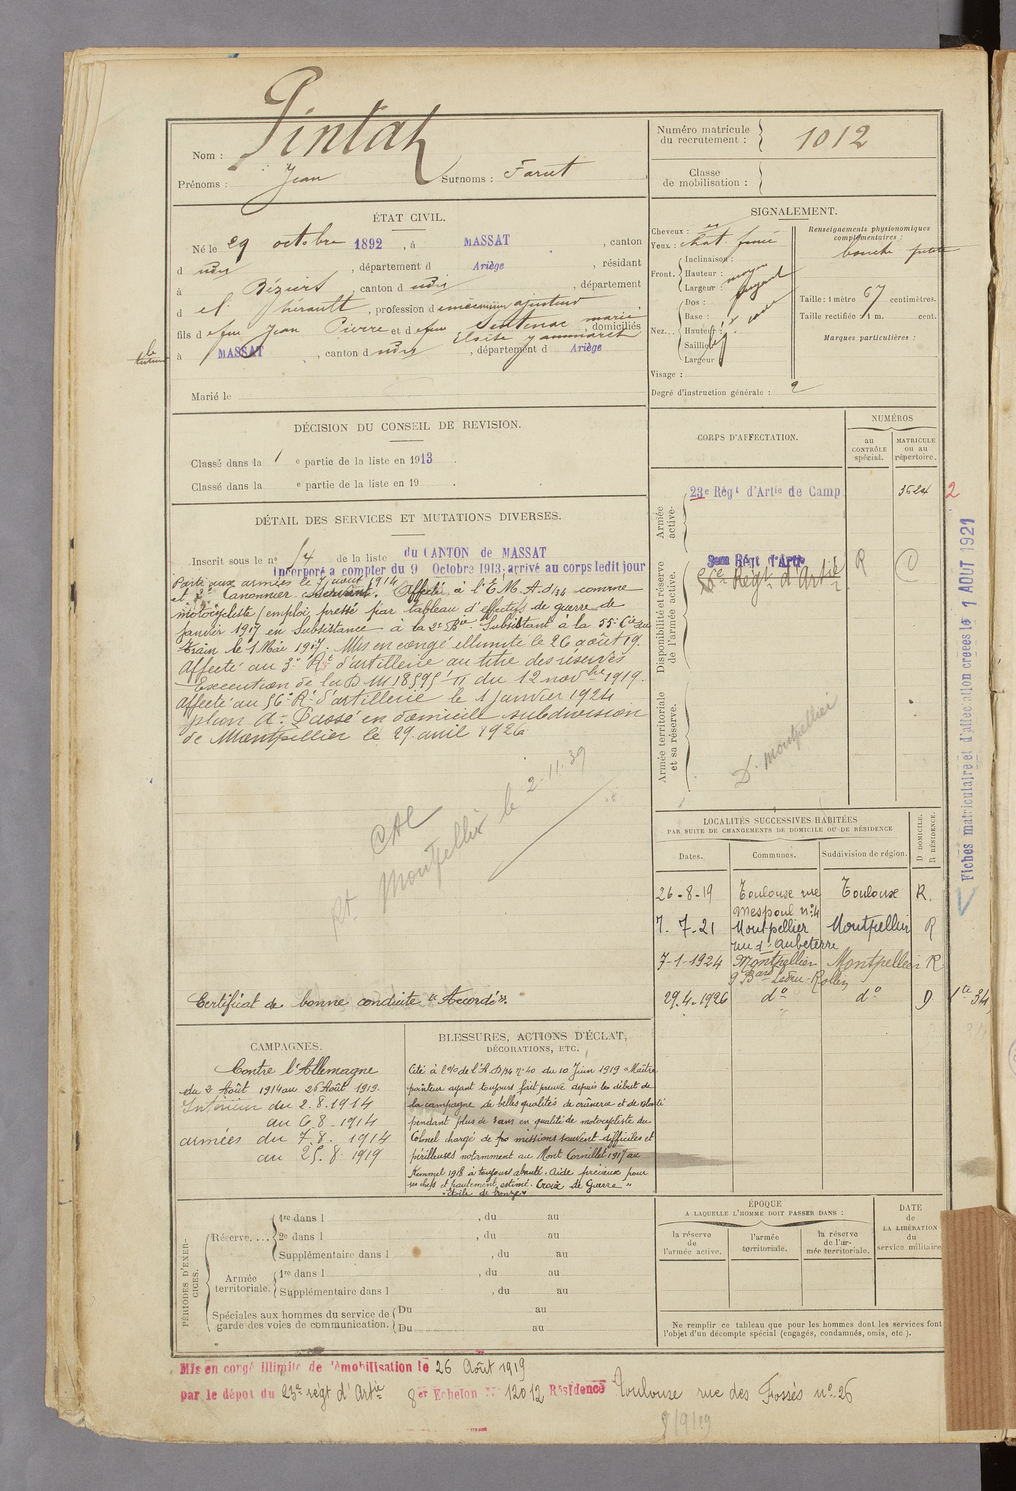 Nom : Pintat
Prénoms : Jean Surnoms : Farut
Numéro matricule du recrutement : 1012
Classe de mobilisation :
ÉTAT CIVIL.
Né le 29 octobre 1892, à MASSAT, canton
d udit, département d Ariège, résidant
à Béziers, canton d udit, département
d e l'Hérault, profession d e mécanicien ajusteur
fils d e feu Jean Pierre et d e feu Sentenac marie
domiciliés
à MASSAT, canton d udit, département d Ariège
Marié le
SIGNALEMENT.
Cheveux :
Yeux : chat. foncé
Front. Inclinaison :
Hauteur : moyen
Largeur :
Nez... Dos :
Base :
Hauteur :
Saillie :
Largeur :
Visage :
Degré d'instruction générale : 2
Renseignements physionomiques complémentaires :
bouche petite
Taille : 1 mètre 67 centimètres.
Taille rectifiée : 1 m. cent.
Marques particulières :
DÉCISION DU CONSEIL DE REVISION.
Classé dans la 1 e partie de la liste en 1913.
Classé dans la e partie de la liste en 19 .
DÉTAIL DES SERVICES ET MUTATIONS DIVERSES.
Inscrit sous le n° 14 de la liste du CANTON de MASSAT
Incorporé a compter du 9 Octobre 1913, arrivé au corps ledit jour
Parti aux armées le 7 août 1914
et 2e Canonnier servant. Affecté à l'E. M. A. d/34 comme
motocycliste (emploi
par tableau d'effectifs de guerre de
janvier 1917 en Subsistance à la 2e Bie Subsistant à la 55e Cie du
Train le 1 Mai 1917. Mis en congé illimité le 26 août 19.
Affecté au 3e Rt d'artillerie au titre des réserves
Execution de la D. M 18595 II du 12 novbre 1919.
Affecté au 56e Rt d'artillerie le 1 janvier 1924
plan A - Passé en domicile subdivision
de Montpellier le 29 avril 1926
Montpellier le 2-11-39
Certificat de bonne conduite "Accordé".
CORPS D'AFFECTATION.
NUMÉROS
au CONTRÔLE spécial.
MATRICULE ou au répertoire.
Armée active.
23e Régt d'Artie de Camp 3524 2
Disponibilité et réserve de l'armée active.
3eme Régt d'Artie
56e Régt d'Artie R
Armée territoriale et sa réserve.
Dt Montpellier
Fiches matriculaire et d'affectation créées le 1 AOUT 1921
LOCALITÉS SUCCESSIVES HABITÉES
PAR SUITE DE CHANGEMENTS DE DOMICILE OU DE RÉSIDENCE
D DOMICILE. R RÉSIDENCE.
Dates. Communes. Subdivision de région.
26-8-19 Toulouse rue Mespoul n°4 Toulouse R.
7-7-21 Montpellier rue d'Aubeterre Montpellier R
7-1-1924 Montpellier 9 Bard Ledru-Rollin Montpellier R
29.4.1926 d° d° D
CAMPAGNES.
Contre l'Allemagne
du 2 Août 1914 au 26 Août 1919.
Intérieur du 2.8.1914
au 6.8.1914
armées du 7.8.1914
au 25.8.1919
BLESSURES, ACTIONS D'ÉCLAT, DÉCORATIONS, ETC.
Cité à l'O/ de l'A D/34 n° 40 du 10 Juin 1919 "Maître
pointeur ayant toujours fait preuve depuis le début de
la campagne de belles qualités de crânerie et de
pendant plus de 3 ans en qualité de motocycliste du
Colonel chargé de missions souvent difficiles et
périlleuses notamment au Mont Cornillet 1917 au
Kemmel 1918 à toujours Aide précieux pour
ses chefs et hautement estimé. Croix de Guerre "
étoile de bronze"
PÉRIODES D'EXERCICES.
Réserve.... 1re dans l , du au
2e dans l , du au
Supplémentaire dans l , du au
Armée territoriale. 1re dans l , du au
Supplémentaire dans l , du au
Spéciales aux hommes du service de garde des voies de communication. Du au
Du au
ÉPOQUE
A LAQUELLE L'HOMME DOIT PASSER DANS :
la réserve de l'armée active.
l'armée territoriale.
la réserve de l'armée territoriale.
DATE de LA LIBÉRATION du service militaire
Ne remplir ce tableau que pour les hommes dont les services font l'objet d'un décompte spécial (engagés, condamnés, omis, etc ).
Mis en congé illimité de démobilisation le 26 Août 1919
par le dépot du 23e régt d'Artie 8er Echelon N° 12012 Résidence Toulouse rue des Fossés n° 26